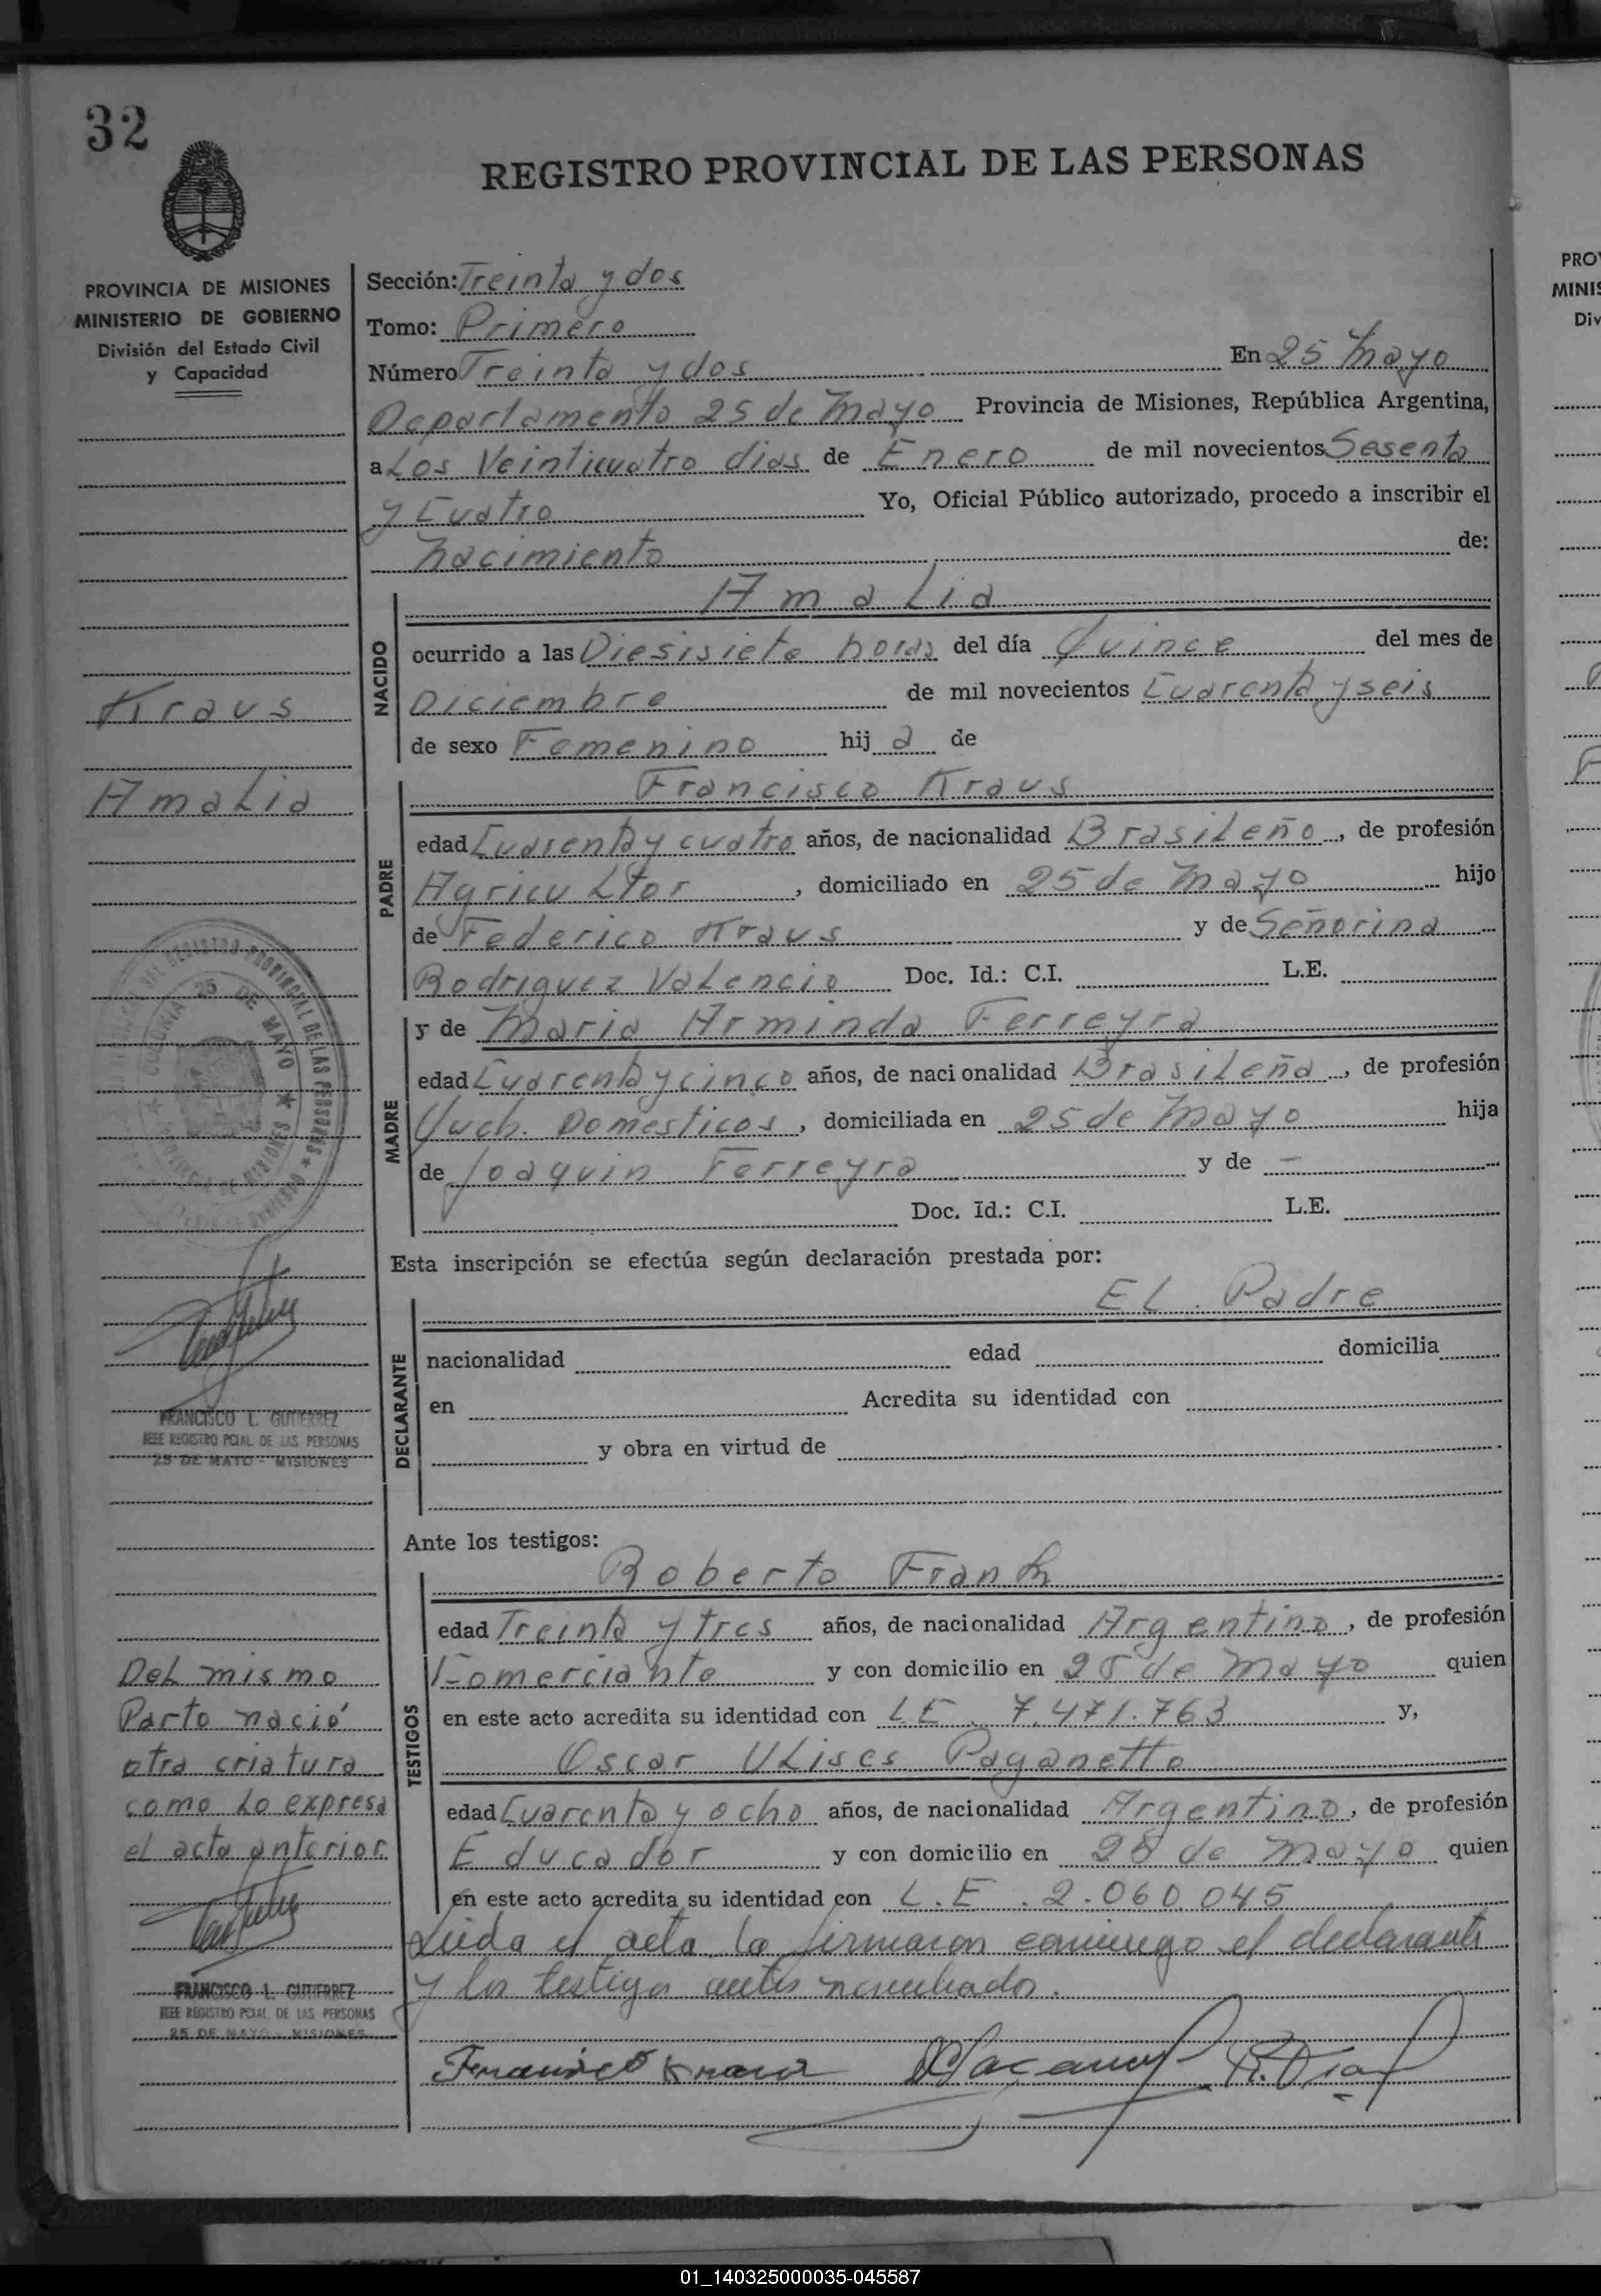 32
REGISTRO PROVINCIAL DE LAS PERSONAS
PROVINCIA DE MISIONES
MINISTERIO DE GOBIERNO
División del Estado Civil
y Capacidad
Sección: Treinta y dos
Tomo: Primero
Número Treinta y dos En 25 Mayo
Departamento 25 de Mayo Provincia de Misiones, República Argentina,
a Los Veinticuatro dias de Enero de mil novecientos Sesenta
y Cuatro Yo, Oficial Público autorizado, procedo a inscribir el
Nacimiento de:
Kraus
Amalia
NACIDO
Amalia
ocurrido a las Diesisiete horas del día Quince del mes de
Diciembre de mil novecientos Cuarenta y seis
de sexo Femenino hij a de
PADRE
Francisco Kraus
edad Cuarenta y cuatro años, de nacionalidad Brasileño, de profesión
Agricultor, domiciliado en 25 de Mayo hijo
de Federico Kraus y de Señorina
Rodriguez Valencio Doc. Id.: C.I. L.E.
MADRE
y de Maria Arminda Ferreyra
edad Cuarenta y cinco años, de nacionalidad Brasileña, de profesión
Quch. Domesticos, domiciliada en 25 de Mayo hija
de Joaquin Ferreyra y de —
Doc. Id.: C.I. L.E.
COLONIA 25 DE MAYO
REGISTRO PROVINCIAL DE LAS PERSONAS
FRANCISCO L. GUTIERREZ
JEFE REGISTRO PCIAL. DE LAS PERSONAS
25 DE MAYO - MISIONES
Esta inscripción se efectúa según declaración prestada por:
DECLARANTE
EL Padre
nacionalidad edad domicilia
en Acredita su identidad con
y obra en virtud de
Ante los testigos:
TESTIGOS
Roberto Frank
edad Treinta y tres años, de nacionalidad Argentino, de profesión
Comerciante y con domicilio en 25 de Mayo quien
en este acto acredita su identidad con L.E. 7.471.763 y,
Oscar Ulises Paganetto
edad Cuarenta y ocho años, de nacionalidad Argentino, de profesión
Educador y con domicilio en 25 de Mayo quien
en este acto acredita su identidad con L.E. 2.060.045
Leida el acta la firmaron conmigo el declarante
y los testigos antes nombrados.
Francisco Kraus
Del mismo
Parto nació
otra criatura
como lo expresa
el acta anterior.
FRANCISCO L. GUTIERREZ
JEFE REGISTRO PCIAL. DE LAS PERSONAS
25 DE MAYO - MISIONES
PRO
MINIS
Div
01_140325000035-045587